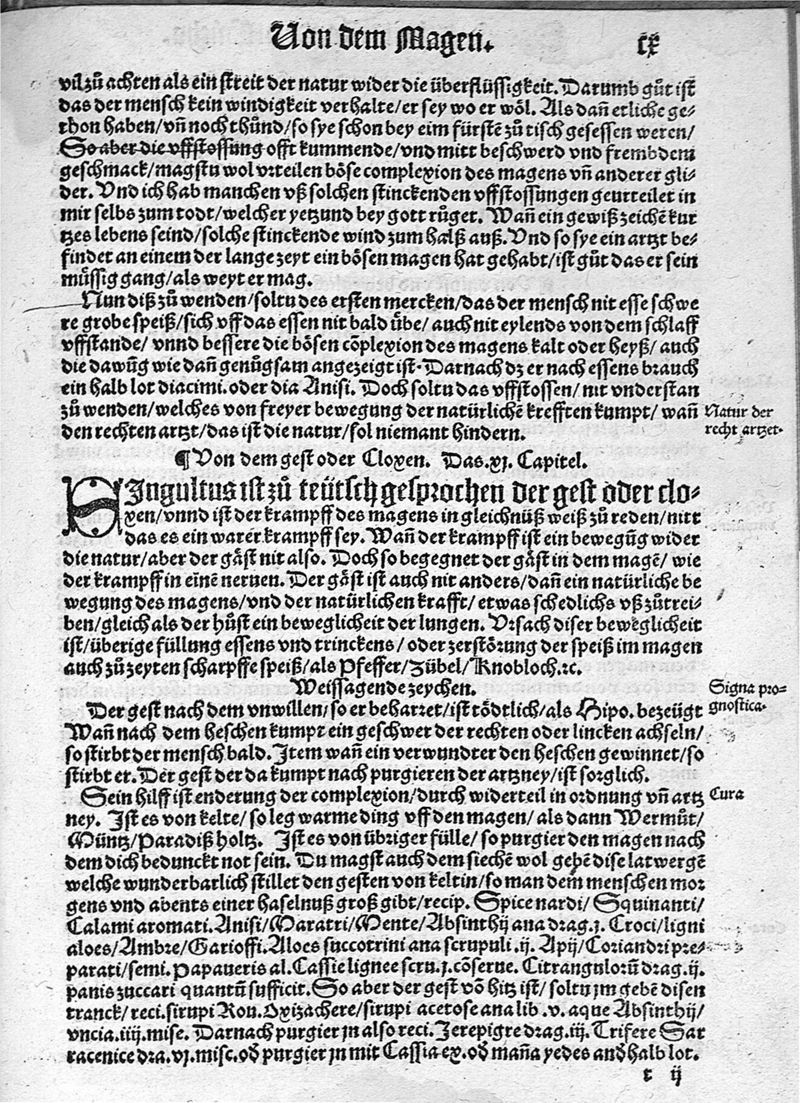 Von dem Magen.
cx
vil zů achten als ein streit der natur wider die überflüssigkeit. Darumb gůt ist
das der mensch kein windigkeit verhalte/er sey wo er wöl. Als dañ etliche ge-
thon haben/vñ noch thůnd/so sye schon bey eim fürstē zů tisch gesessen weren/
So aber die vffstossung offt kummende/vnd mitt beschwerd vnd frembdem
geschmack/magstu wol vrteilen böse complexion des magens vñ anderer gli-
der. Vnd ich hab manchen vß solchen stinckenden vffstossungen geurteilet in
mir selbs zum todt/welcher yetzund bey gott růget. Wañ ein gewiß zeichē kur
tzes lebens seind/solche stinckende wind zum halß auß. Vnd so sye ein artzt be-
findet an einem der lange zeyt ein bösen magen hat gehabt/ist gůt das er sein
müssig gang/als weyt er mag.
Nun diß zů wenden/soltu des ersten mercken/das der mensch nit esse schwe
re grobe speiß/sich vff das essen nit bald übe/auch nit eylends von dem schlaff
vffstande/vnnd bessere die bösen cōplexion des magens kalt oder heyß/auch
die dawūg wie dañ genůgsam angezeigt ist. Darnach dz er nach essens brauch
ein halb lot diacimi. oder dia Anisi. Doch soltu das vffstossen/nit vnderstan
zů wenden/welches von freyer bewegung der natürlichē krefften kumpt/wañ
den rechten artzt/das ist die natur/sol niemant hindern.
Natur der
recht artzet.
¶ Von dem gest oder Cloxen. Das .xj. Capitel.
SIngultus ist zů teütsch gesprochen der gest oder clo-
xen/vnnd ist der krampff des magens in gleichnüß weiß zů reden/nitt
das es ein warer krampff sey. Wañ der krampff ist ein bewegūg wider
die natur/aber der gäst nit also. Doch so begegnet der gäst in dem magē/wie
der krampff in einē neruen. Der gäst ist auch nit anders/dañ ein natürliche be
wegung des magens/vnd der natürlichen krafft/etwas schedlichs vß zůtrei-
ben/gleich als der hůst ein beweglicheit der lungen. Vrsach diser beweglicheit
ist/überige füllung essens vnd trinckens/oder zerstörung der speiß im magen
auch zů zeyten scharpffe speiß/als Pfeffer/Zübel/Knobloch.ꝛc.
Weissagende zeychen.
Signa pro-
gnostica.
Der gest nach dem vnwillen/so er beharret/ist tödtlich/als Hipo. bezeügt
Wañ nach dem heschen kumpt ein geschwer der rechten oder lincken achseln/
so stirbt der mensch bald. Item wañ ein verwundter den heschen gewinnet/so
stirbt er. Der gest der da kumpt nach purgieren der artzney/ist sorglich.
Sein hilff ist enderung der complexion/durch widerteil in ordnung vñ artz
Cura
ney. Ist es von kelte/so leg warme ding vff den magen/als dann Wermůt/
Müntz/Paradiß holtz. Ist es von übriger fülle/so purgier den magen nach
dem dich bedunckt not sein. Du magst auch dem siechē wol gebē dise latwergē
welche wunderbarlich stillet den gesten von keltin/so man dem menschen mor
gens vnd abents einer haselnuß groß gibt/recip. Spice nardi/Squinanti/
Calami aromati. Anisi/Maratri/Mente/Absinthij ana drag.j. Croci/ligni
aloes/Ambre/Gariofi. Aloes succotrini ana scrupuli .ij. Apij/Coriandri pre-
parati/semi. Papaueris al. Cassie lignee scru.j. cōserue. Citrangulorū drag.ij.
panis zuccari quantū sufficit. So aber der gest vō hitz ist/soltu jm gebē disen
tranck/reci. sirupi Ros. Oxizachere/sirupi acetose ana lib .v. aque Absinthij/
vncia.iiij. mise. Darnach purgier jn also reci. Jerepigre drag.iij. Trifere Sar
racenice dra.vj. misc. oď purgier jn mit Cassia ex. oď mañа yedes andhalb lot.
t ij